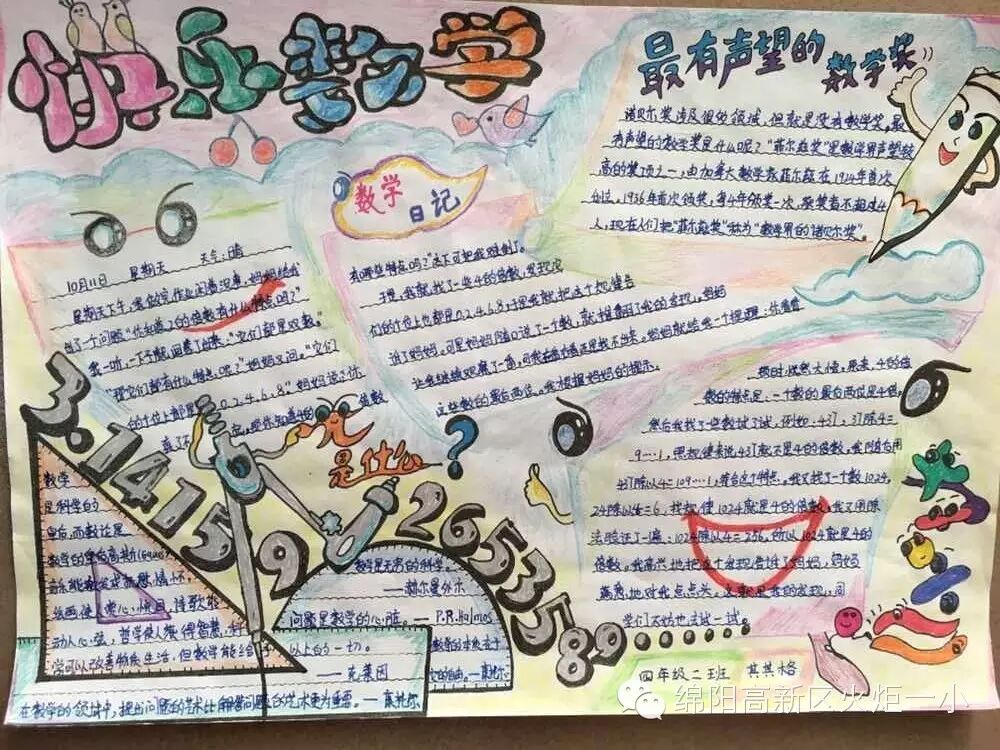 快乐数学
最有声望的数学奖
诺贝尔奖涉及很多领域,但就是没有数学奖,最
有声望的数学奖是什么呢?“菲尔兹奖”是数学界声望较
高的奖项之一,由加拿大数学家菲尔兹在1924年首次
1936年首次颁奖,每4年颁奖一次,获奖者不超过4
人,现在人们把“菲尔兹奖”称为“数学界的诺贝尔奖”。
数学日记
10月11日 星期天 天气:晴
星期天下午,我做完作业闲着没事,妈妈给我
出了一个问题“你知道2的倍数有什么特点吗?”
我一听,一下子就回答了出来:“它们都是双数。”
“那它们都有什么特点呢?”妈妈又问。“它们
的个位上都是0、2、4、6、8。”妈妈说:“你
真了不起,那你知道4的倍数
有哪些特点吗?”这下可把我难倒了。
于是,我就找了一些4的倍数,发现它
们的个位上也都是0、2、4、6、8,于是我就把这个规律告
诉了妈妈。可是妈妈随口说了一个数,就推翻了我的发现。妈妈
让我继续观察了一番,可我左看右看还是找不出来。妈妈就给我一个提醒:你看看
这些数的最后两位。我根据妈妈的提示,
顿时恍然大悟,原来,4的倍
数的特点是:一个数的最后两位是4倍,
然后我找了些数试了试,例如:437,37除4=
9……1,照规律来说437就不是4的倍数,我们再用
437除以4=109……1,符合这个特点,我又找了一个数1024,
24除以4=6,按规律1024就是4的倍数,我又用除
法验证了一遍:1024除以4=256,所以1024就是4的
倍数。我高兴地把这个发现告诉了妈妈,妈妈
满意地对我点点头,这就是我的发现,同
学们不妨也去试一试。
3.14159
π是什么?
26535389……
数学
是科学的
皇后,而数论是
数学的皇后高斯(Gauss)
音乐能激发或抚慰情怀,
绘画使人赏心悦目,诗歌能
动人心弦,哲学使人获得智慧,科
学可以改善物质生活,但数学能给予
以上的一切。
——克莱因
在数学的领域中,提出问题的艺术比解答问题的艺术更为重要。——康托尔
数学是无穷的科学。
——赫尔曼外尔
问题是数学的心脏。——P.R.halmos
数学的本质在于
它的自由。——康托尔
四年级二班 其其格
绵阳高新区火炬一小